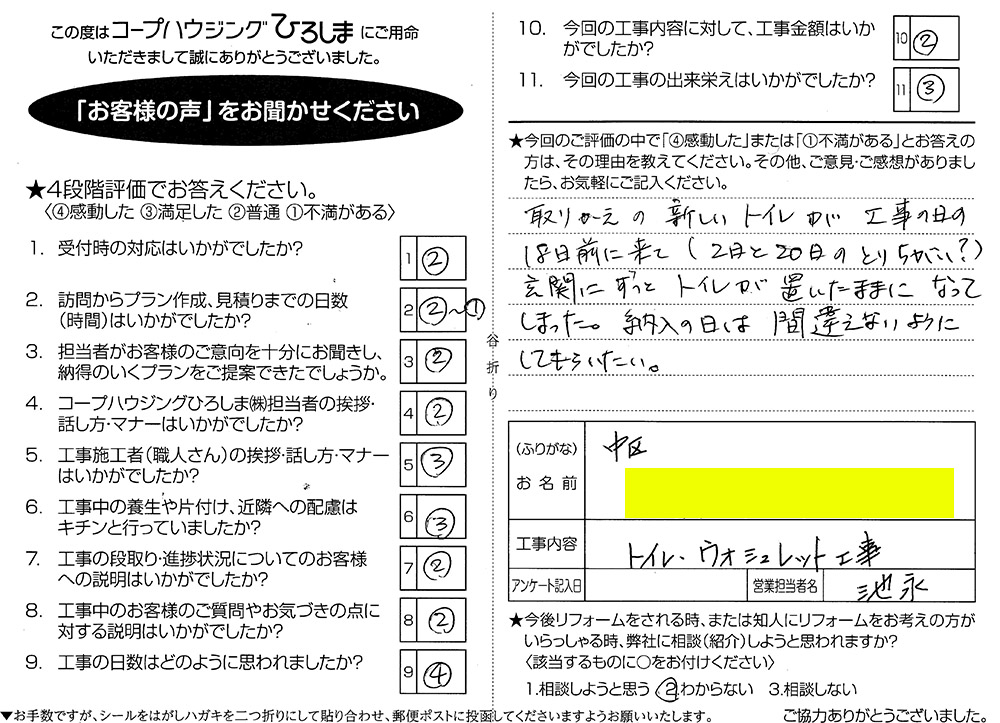 この度はコープハウジングひろしまにご用命
いただきまして誠にありがとうございました。
「お客様の声」をお聞かせください
★4段階評価でお答えください。
〈④感動した ③満足した ②普通 ①不満がある〉
1. 受付時の対応はいかがでしたか?
1 ②
2. 訪問からプラン作成、見積りまでの日数
(時間)はいかがでしたか?
2 ②〜①
3. 担当者がお客様のご意向を十分にお聞きし、
納得のいくプランをご提案できたでしょうか。
3 ②
4. コープハウジングひろしま㈱担当者の挨拶・
話し方・マナーはいかがでしたか?
4 ②
5. 工事施工者(職人さん)の挨拶・話し方・マナー
はいかがでしたか?
5 ③
6. 工事中の養生や片付け、近隣への配慮は
キチンと行っていましたか?
6 ③
7. 工事の段取り・進捗状況についてのお客様
への説明はいかがでしたか?
7 ②
8. 工事中のお客様のご質問やお気づきの点に
対する説明はいかがでしたか?
8 ②
9. 工事の日数はどのように思われましたか?
9 ④
▼お手数ですが、シールをはがしハガキを二つ折りにして貼り合わせ、郵便ポストに投函してくださいますようお願いいたします。
谷折り
10. 今回の工事内容に対して、工事金額はいか
がでしたか?
10 ②
11. 今回の工事の出来栄えはいかがでしたか?
11 ③
★今回のご評価の中で「④感動した」または「①不満がある」とお答えの
方は、その理由を教えてください。その他、ご意見・ご感想がありまし
たら、お気軽にご記入ください。
取りかえの新しいトイレが工事の日の
18日前に来て(2日と20日のとりちがい?)
玄関にずっとトイレが置いたままになって
しまった。納入の日は間違えないように
してもらいたい。
(ふりがな)
お名前
中区
工事内容
トイレ・ウォシュレット工事
アンケート記入日
営業担当者名
池永
★今後リフォームをされる時、または知人にリフォームをお考えの方が
いらっしゃる時、弊社に相談(紹介)しようと思われますか?
〈該当するものに○をお付けください〉
1.相談しようと思う ②わからない 3.相談しない
ご協力ありがとうございました。